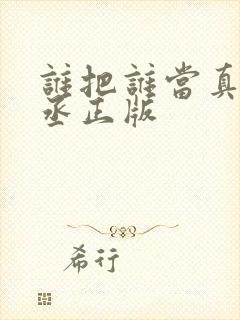 誰把誰當真
丞正版
希行